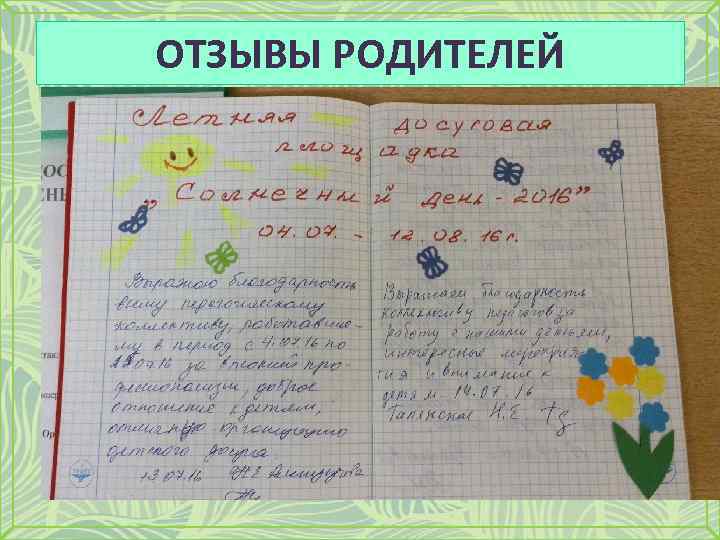 ОТЗЫВЫ РОДИТЕЛЕЙ
Летняя досуговая
площадка
"Солнечный день - 2016"
04.07. - 12.08.16 г.
Выражаю благодарность
всему педагогическому
коллективу, работавше-
му в период с 4.07.16 по
07.16 за высокий про-
фессионализм, доброе
отношение к детям,
отличную организацию
детского досуга.
13.07.16
Выражаем благодарность
коллективу педагогов за
работу с нашими детьми,
интересные мероприя-
тия и внимание к
детям. 14.07.16
Н.Е